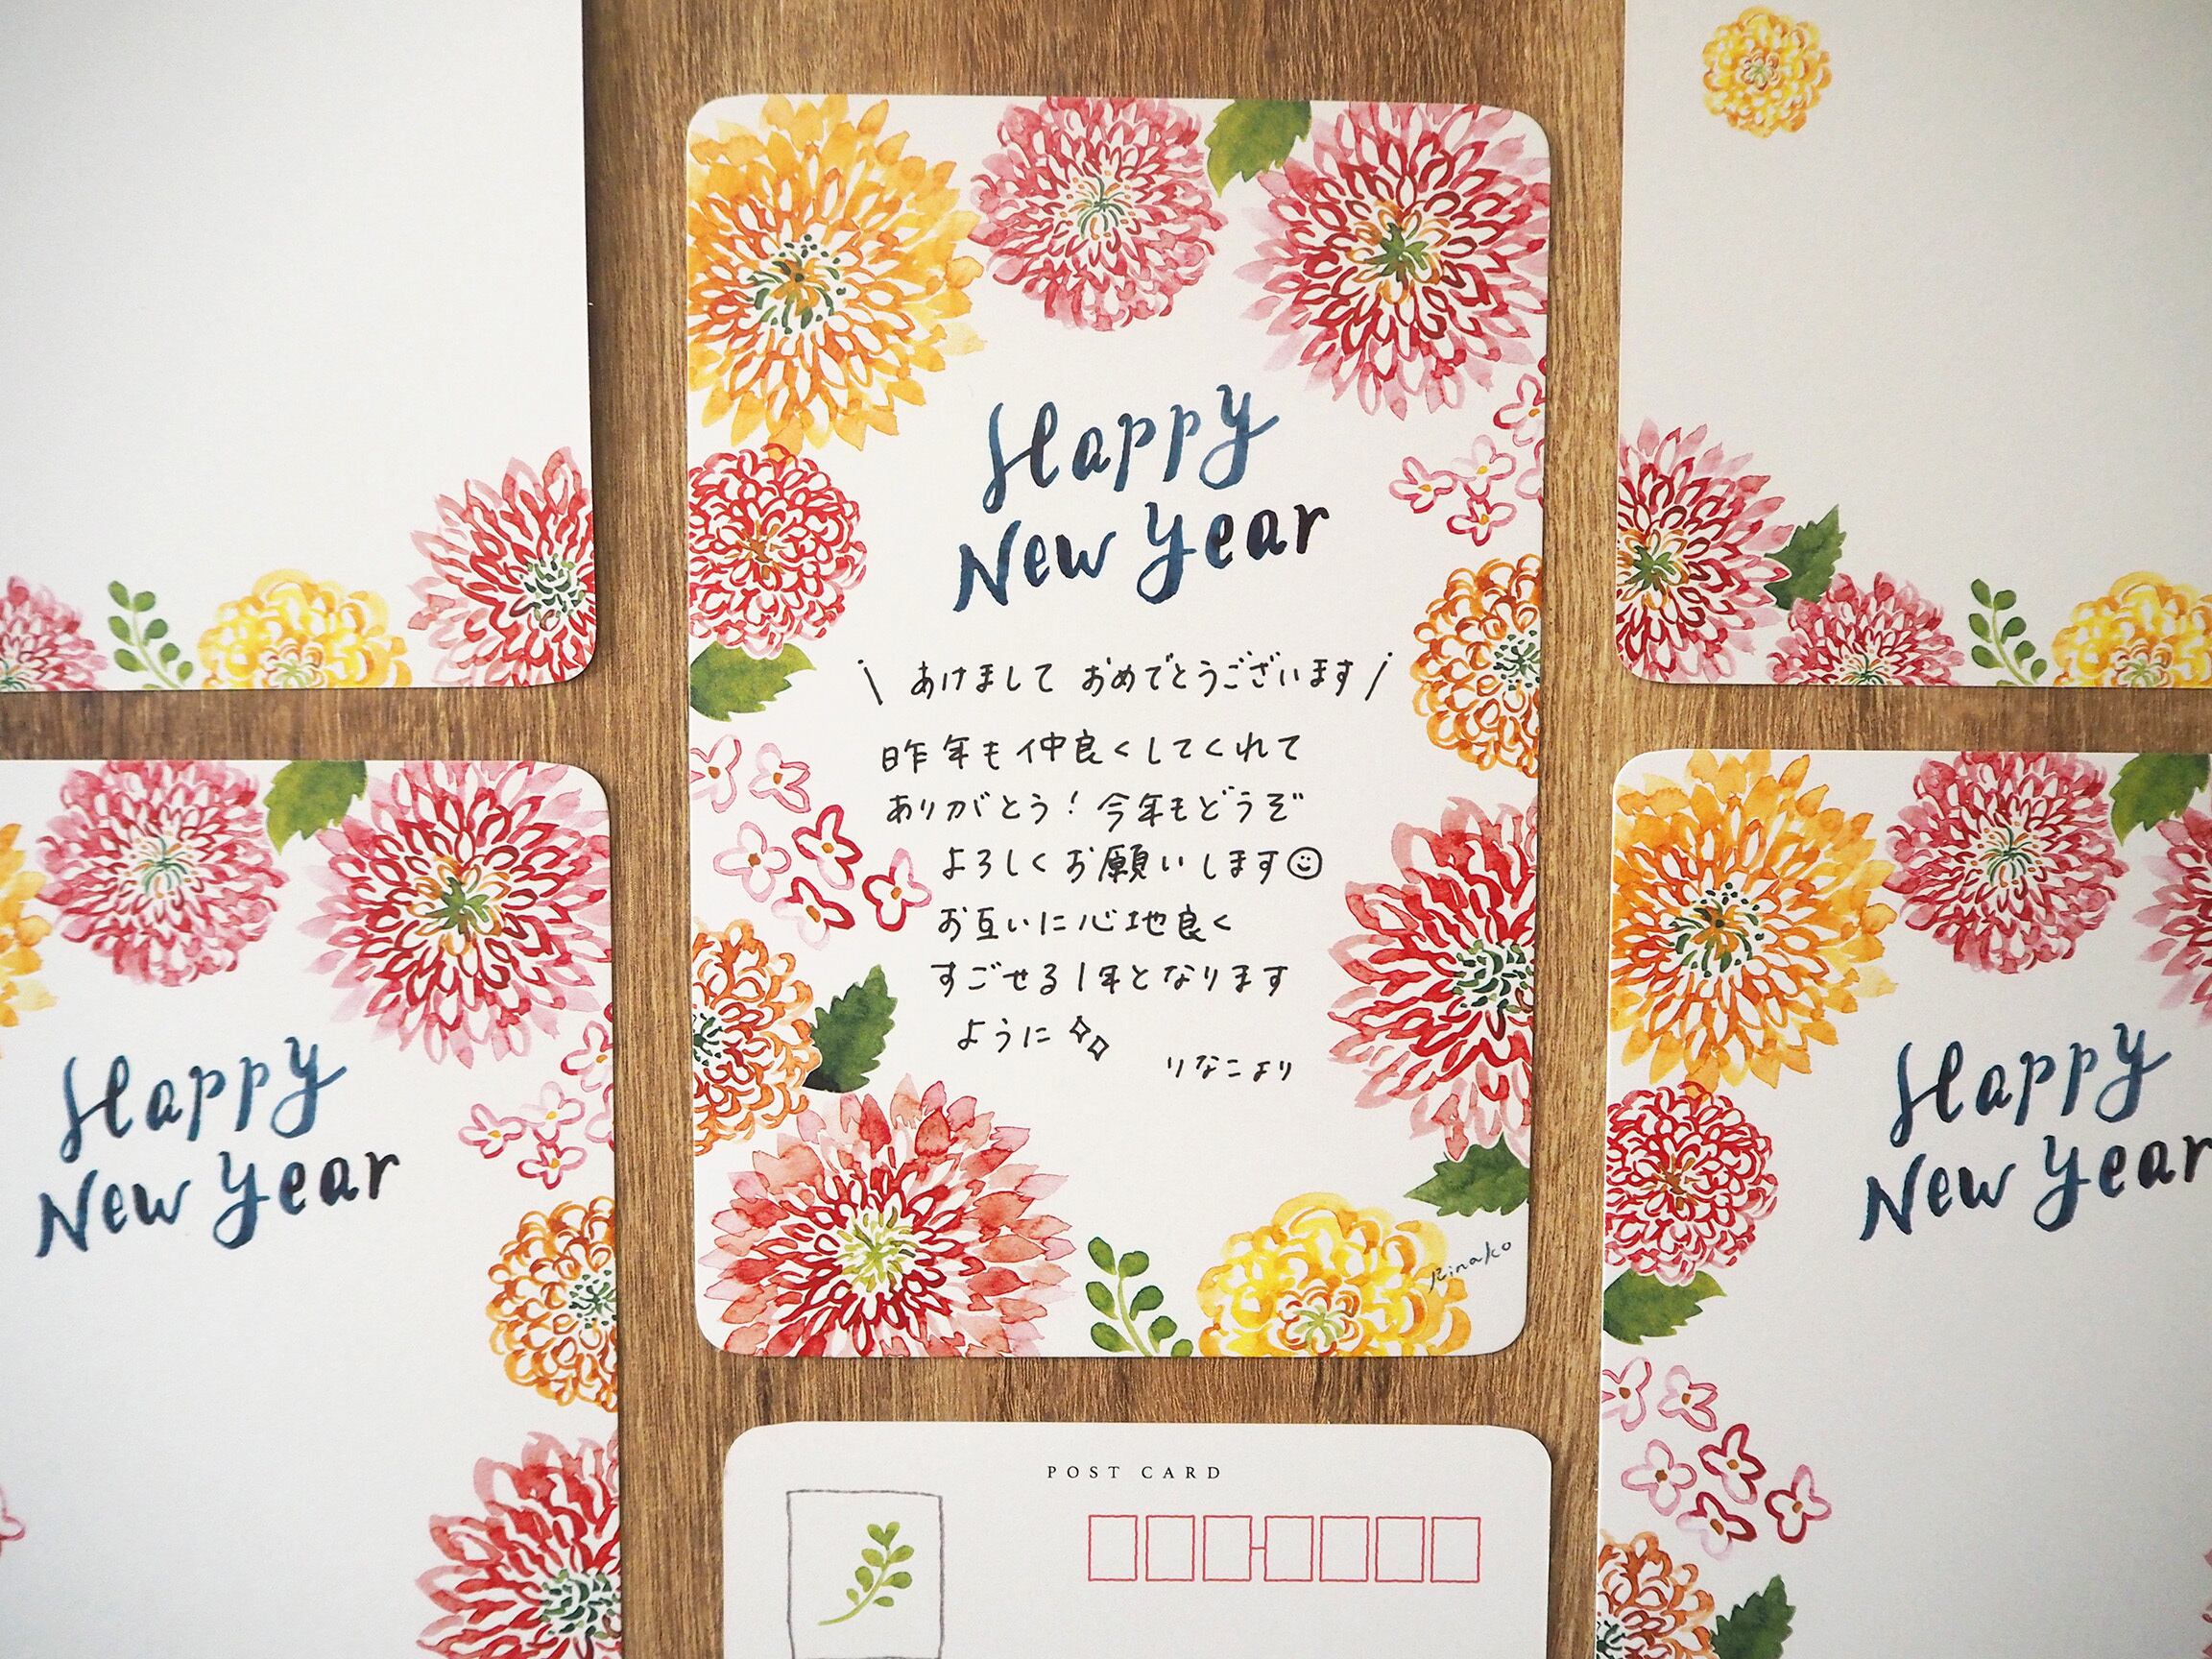 Happy
New Year
\ あけまして おめでとうございます /
昨年も仲良くしてくれて
ありがとう！今年もどうぞ
よろしくお願いします☺
お互いに心地良く
すごせる1年となります
ように
りなこより
Rinako
Happy
New Year
Happy
New Year
POST CARD